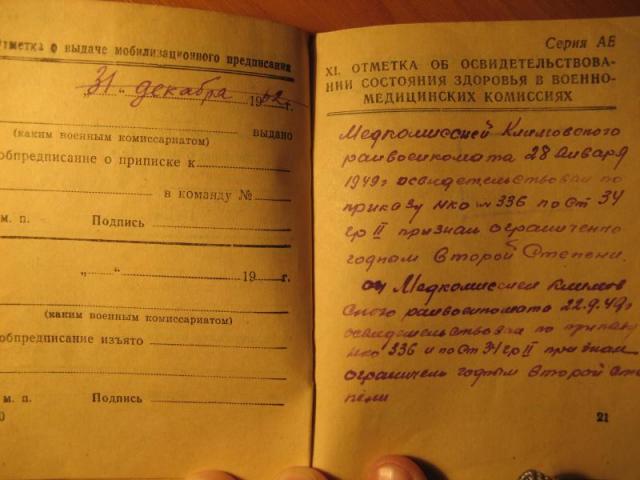 Отметка о выдаче мобилизационного предписания
31 " декабря 1962г.
выдано
(каким военным комиссариатом)
обпредписание о приписке к
в команду №
м. п. Подпись
„ " 19 г.
(каким военным комиссариатом)
обпредписание изъято
м. п. Подпись
0
Серия АБ
XI. ОТМЕТКА ОБ ОСВИДЕТЕЛЬСТВОВА-
НИИ СОСТОЯНИЯ ЗДОРОВЬЯ В ВОЕННО-
МЕДИЦИНСКИХ КОМИССИЯХ
Медкомиссией Климовского
райвоенкомата 28 Января
1949г освидетельствован по
приказу НКО № 336 по Ст 34
гр II признан ограниченно
годным Второй Степени.
Медкомиссией Климов
ского райвоенкомата 22.9.49г
освидетельствован по приказу
НКО 336 и по Ст 34 гр II признан
огранич годным Второй Сте
пени
21